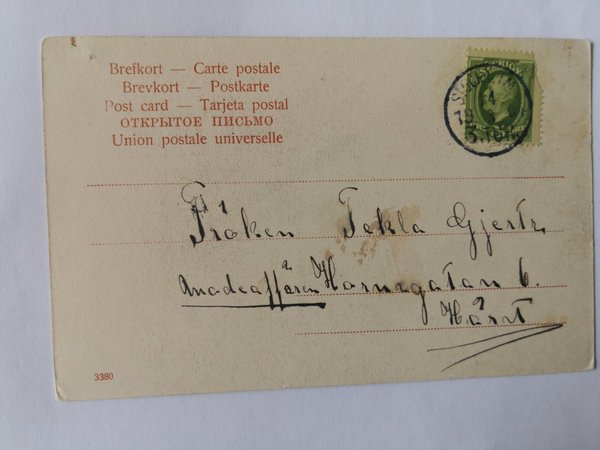 Brefkort — Carte postale
Brevkort — Postkarte
Post card — Tarjeta postal
ОТКРЫТОЕ ПИСЬМО
Union postale universelle
SVERIGE
Fröken Tekla Gjertz
Hornsgatan 6.
Härst
3380